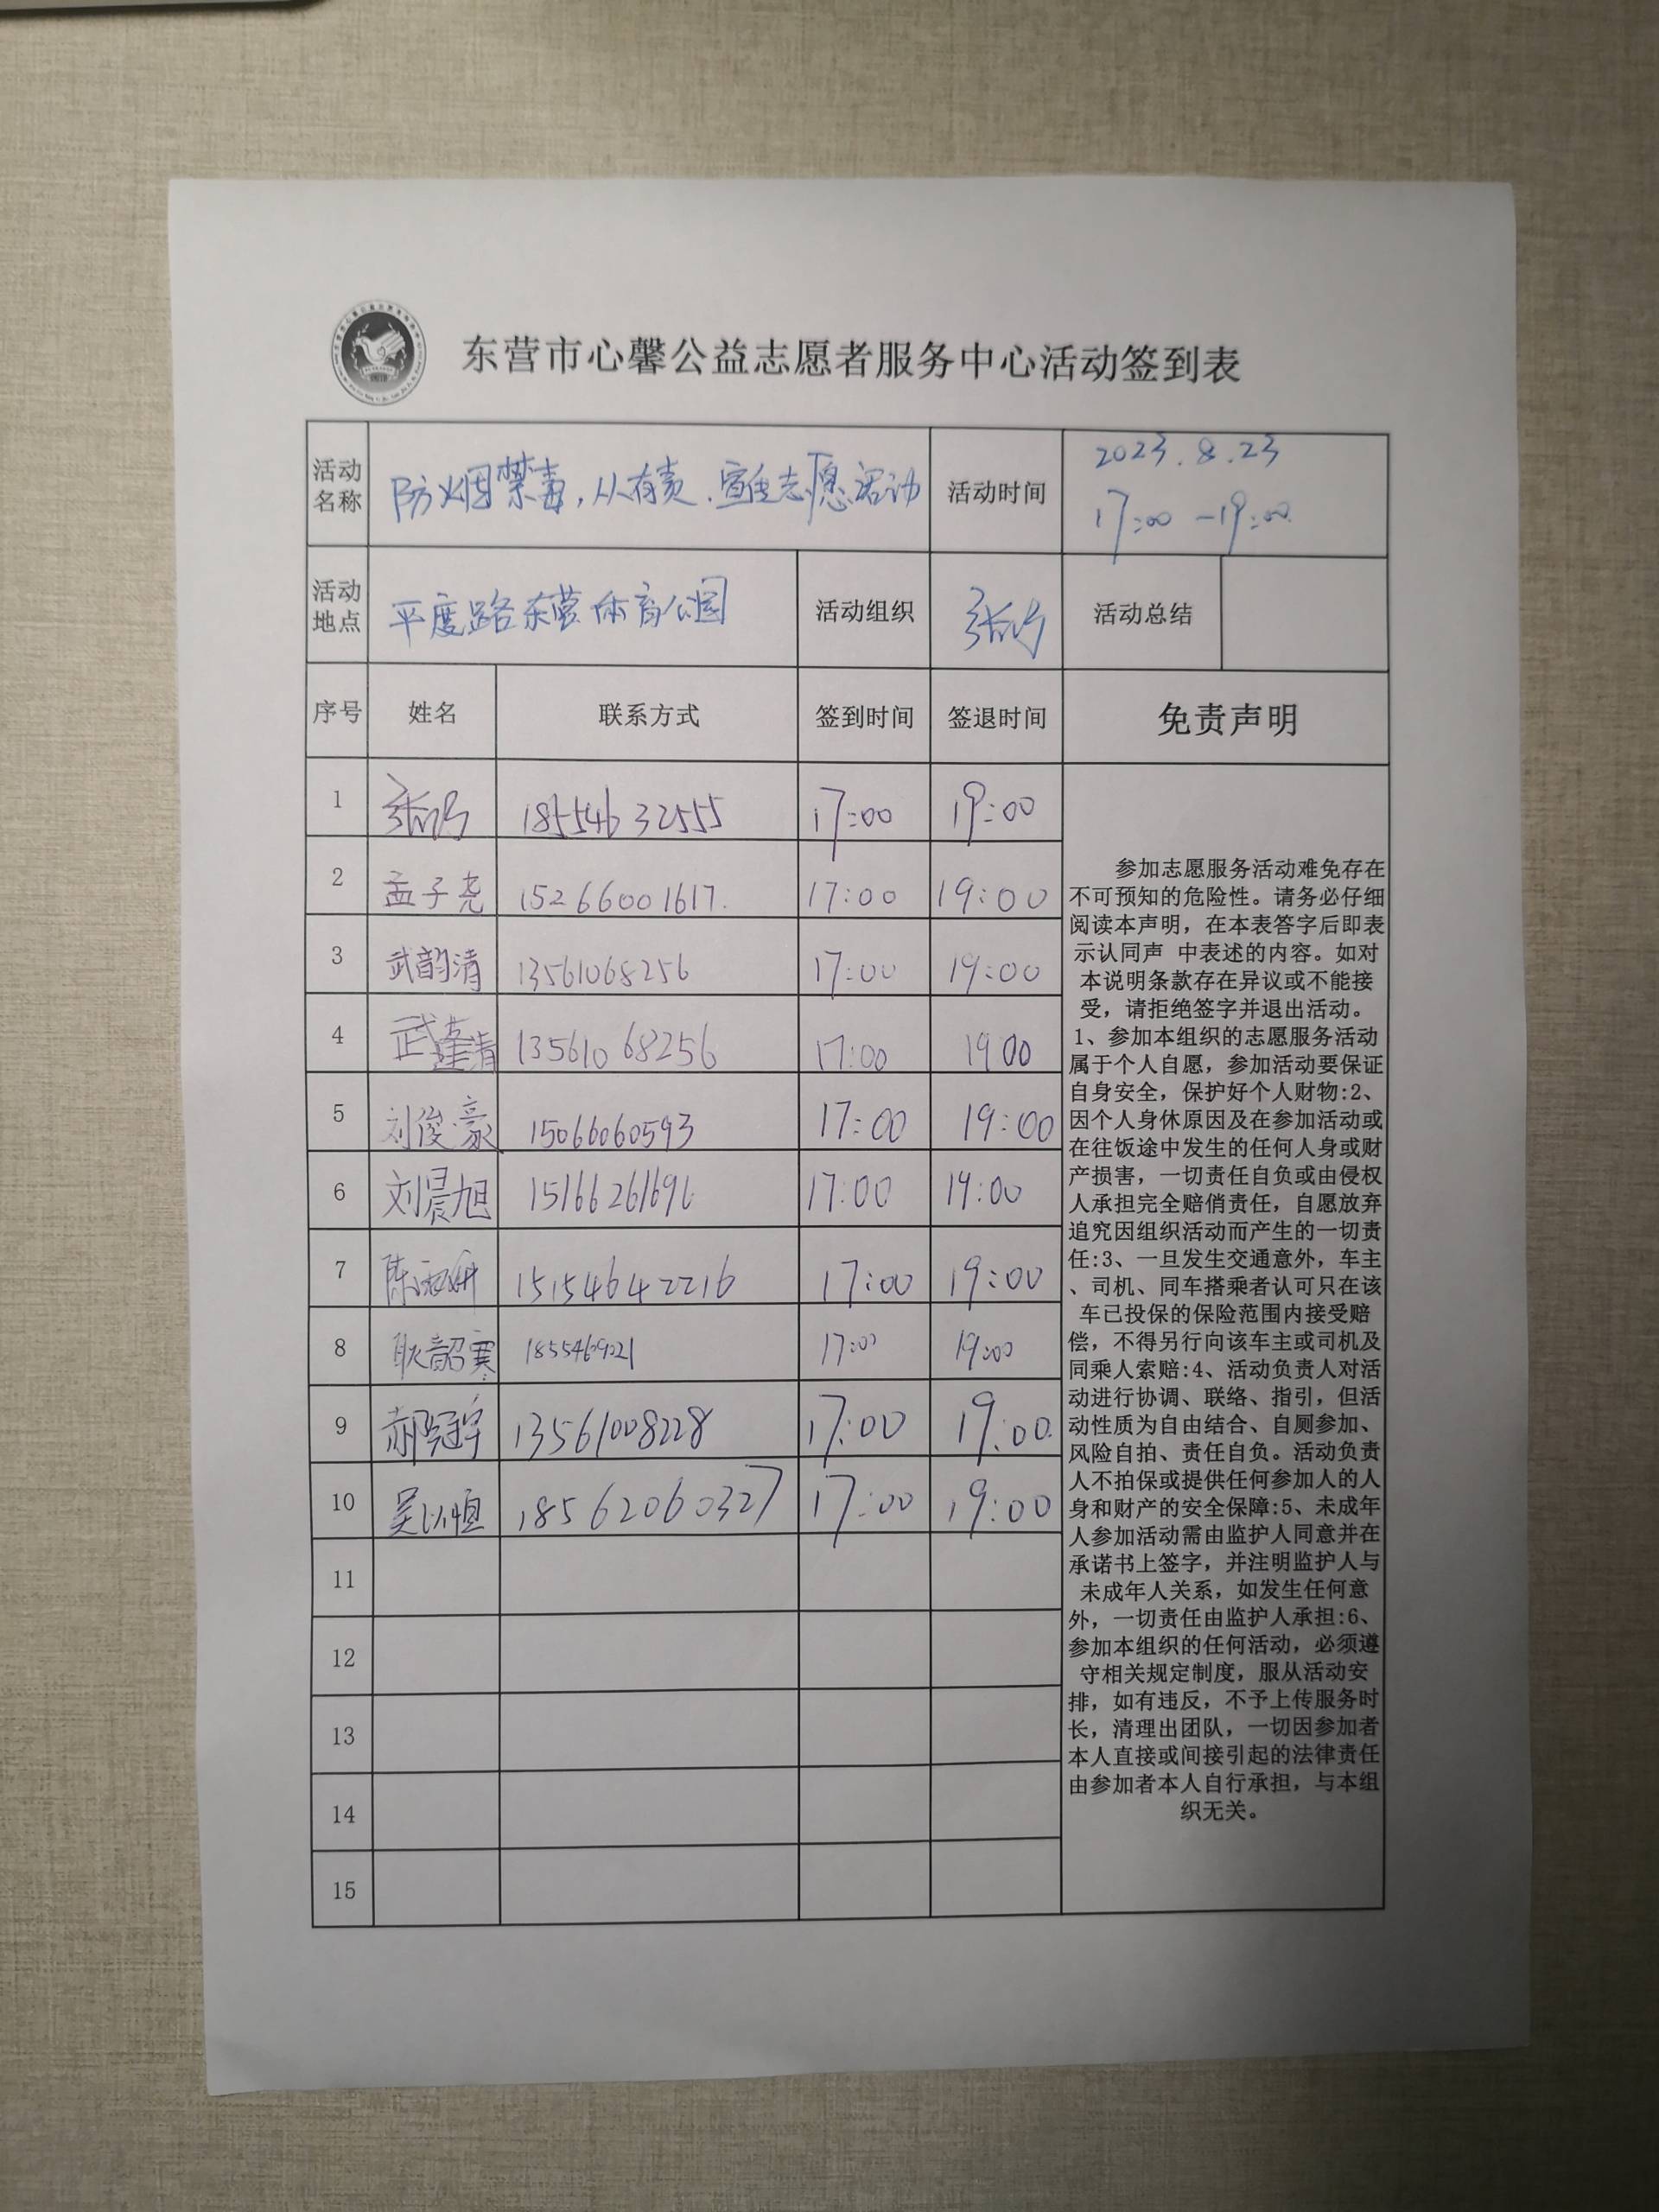 东营市心馨公益志愿者服务中心活动签到表
活动名称 防烟禁毒,从有责.宣传志愿活动 活动时间 2023.8.23 17:00-19:00
活动地点 平度路东营体育公园 活动组织 活动总结
序号 姓名 联系方式 签到时间 签退时间 免责声明
1 18554632555 17:00 19:00
2 孟子尧 15266001617. 17:00 19:00
3 武韵清 13561068256 17:00 19:00
4 武蓬清 13561068256 17:00 19 00
5 刘俊豪 15066060593 17:00 19:00
6 刘晨旭 15166261696 17:00 19:00
7 15154642216 17:00 19:00
8 耿韶寒 17:00 19:00
9 郝冠宇 13561008228 17:00 19:00
10 吴以恒 18562060327 17:00 19:00
11
12
13
14
15
参加志愿服务活动难免存在
不可预知的危险性。请务必仔细
阅读本声明，在本表答字后即表
示认同声 中表述的内容。如对
本说明条款存在异议或不能接
受，请拒绝签字并退出活动。
1、参加本组织的志愿服务活动
属于个人自愿，参加活动要保证
自身安全，保护好个人财物:2、
因个人身休原因及在参加活动或
在往饭途中发生的任何人身或财
产损害，一切责任自负或由侵权
人承担完全赔俏责任，自愿放弃
追究因组织活动而产生的一切责
任:3、一旦发生交通意外，车主
、司机、同车搭乘者认可只在该
车已投保的保险范围内接受赔
偿，不得另行向该车主或司机及
同乘人索赔:4、活动负责人对活
动进行协调、联络、指引，但活
动性质为自由结合、自厕参加、
风险自拍、责任自负。活动负责
人不拍保或提供任何参加人的人
身和财产的安全保障:5、未成年
人参加活动需由监护人同意并在
承诺书上签字，并注明监护人与
未成年人关系，如发生任何意
外，一切责任由监护人承担:6、
参加本组织的任何活动，必须遵
守相关规定制度，服从活动安
排，如有违反，不予上传服务时
长，清理出团队，一切因参加者
本人直接或间接引起的法律责任
由参加者本人自行承担，与本组
织无关。